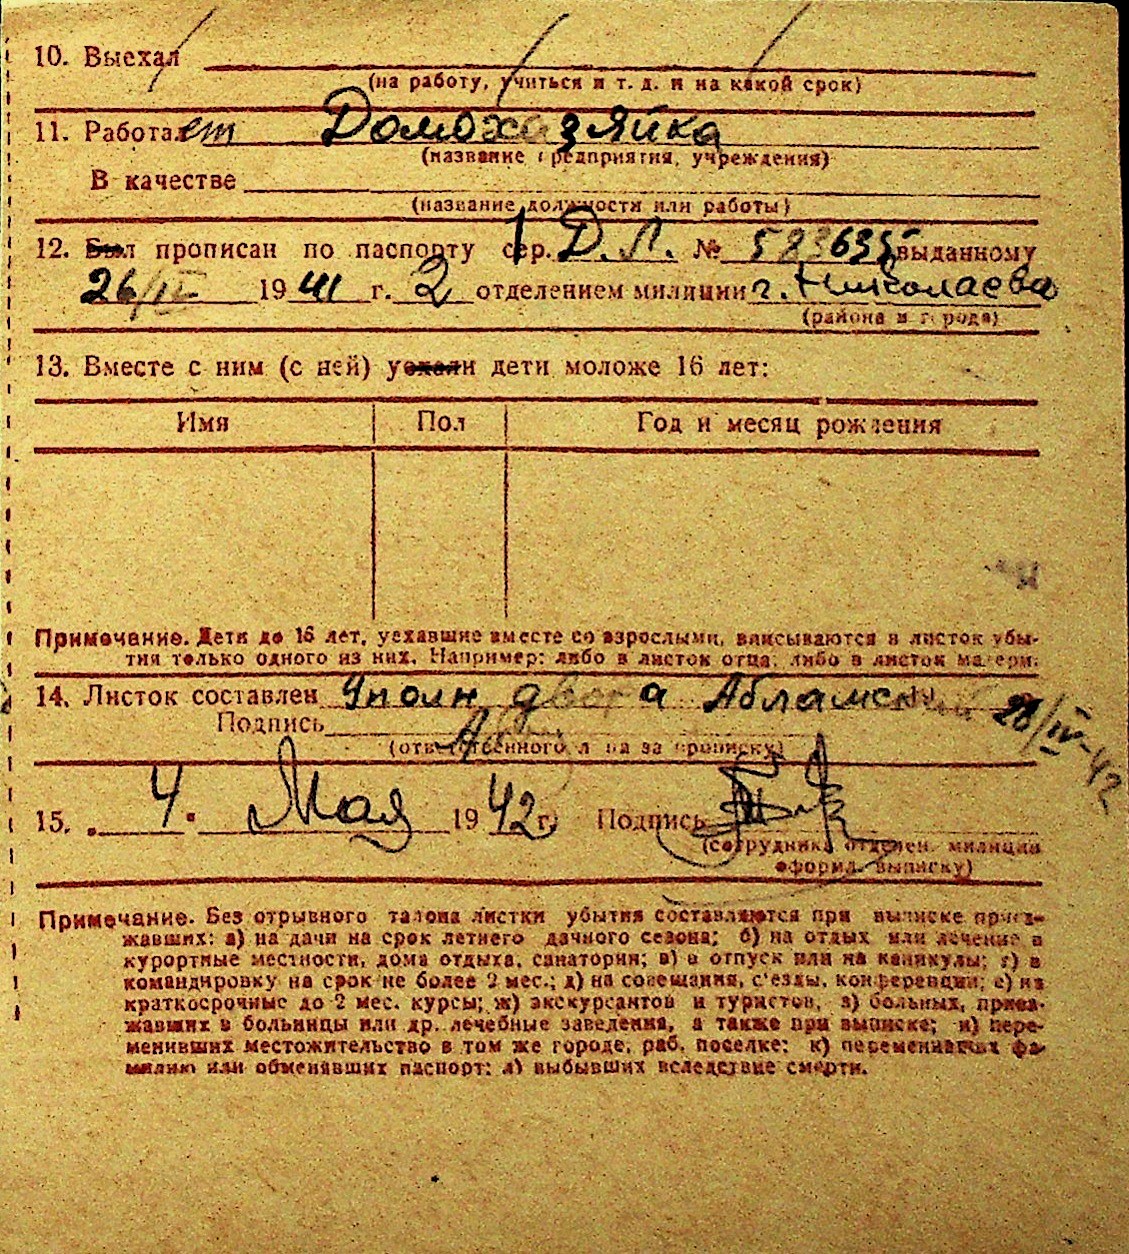 10. Выехал
(на работу, учиться и т. д. и на какой срок)
11. Работает Домохазяйка
(название предприятия, учреждения)
В качестве
(название должности или работы)
12. Был прописан по паспорту сер. Д. Л. № 583635 выданному
26/II 1941 г. 2 отделением милиции г. Николаева
(района и города)
13. Вместе с ним (с ней) уехали дети моложе 16 лет:
Имя Пол Год и месяц рождения
Примечание. Дети до 16 лет, уехавшие вместе со взрослыми, вписываются в листок убы-
тия только одного из них. Например: либо в листок отца, либо в листок матери.
14. Листок составлен Уполн двора 28/IV-42
Подпись
(ответственного лица за прописку)
15. „4" Мая 1942 г. Подпись
(сотрудника отделен. милиции
оформл. выписку)
Примечание. Без отрывного талона листки убытия составляются при выписке приез-
жавших: а) на дачи на срок летнего дачного сезона; б) на отдых или лечение в
курортные местности, дома отдыха, санатории; в) в отпуск или на каникулы; г) в
командировку на срок не более 2 мес.; д) на совещания, с'езды, конференции; е) на
краткосрочные до 2 мес. курсы; ж) экскурсантов и туристов, з) больных, приез-
жавших в больницы или др. лечебные заведения, а также при выписке; и) пере-
менивших местожительство в том же городе, раб. поселке; к) переменивших фа-
милию или обменявших паспорт; л) выбывших вследствие смерти.